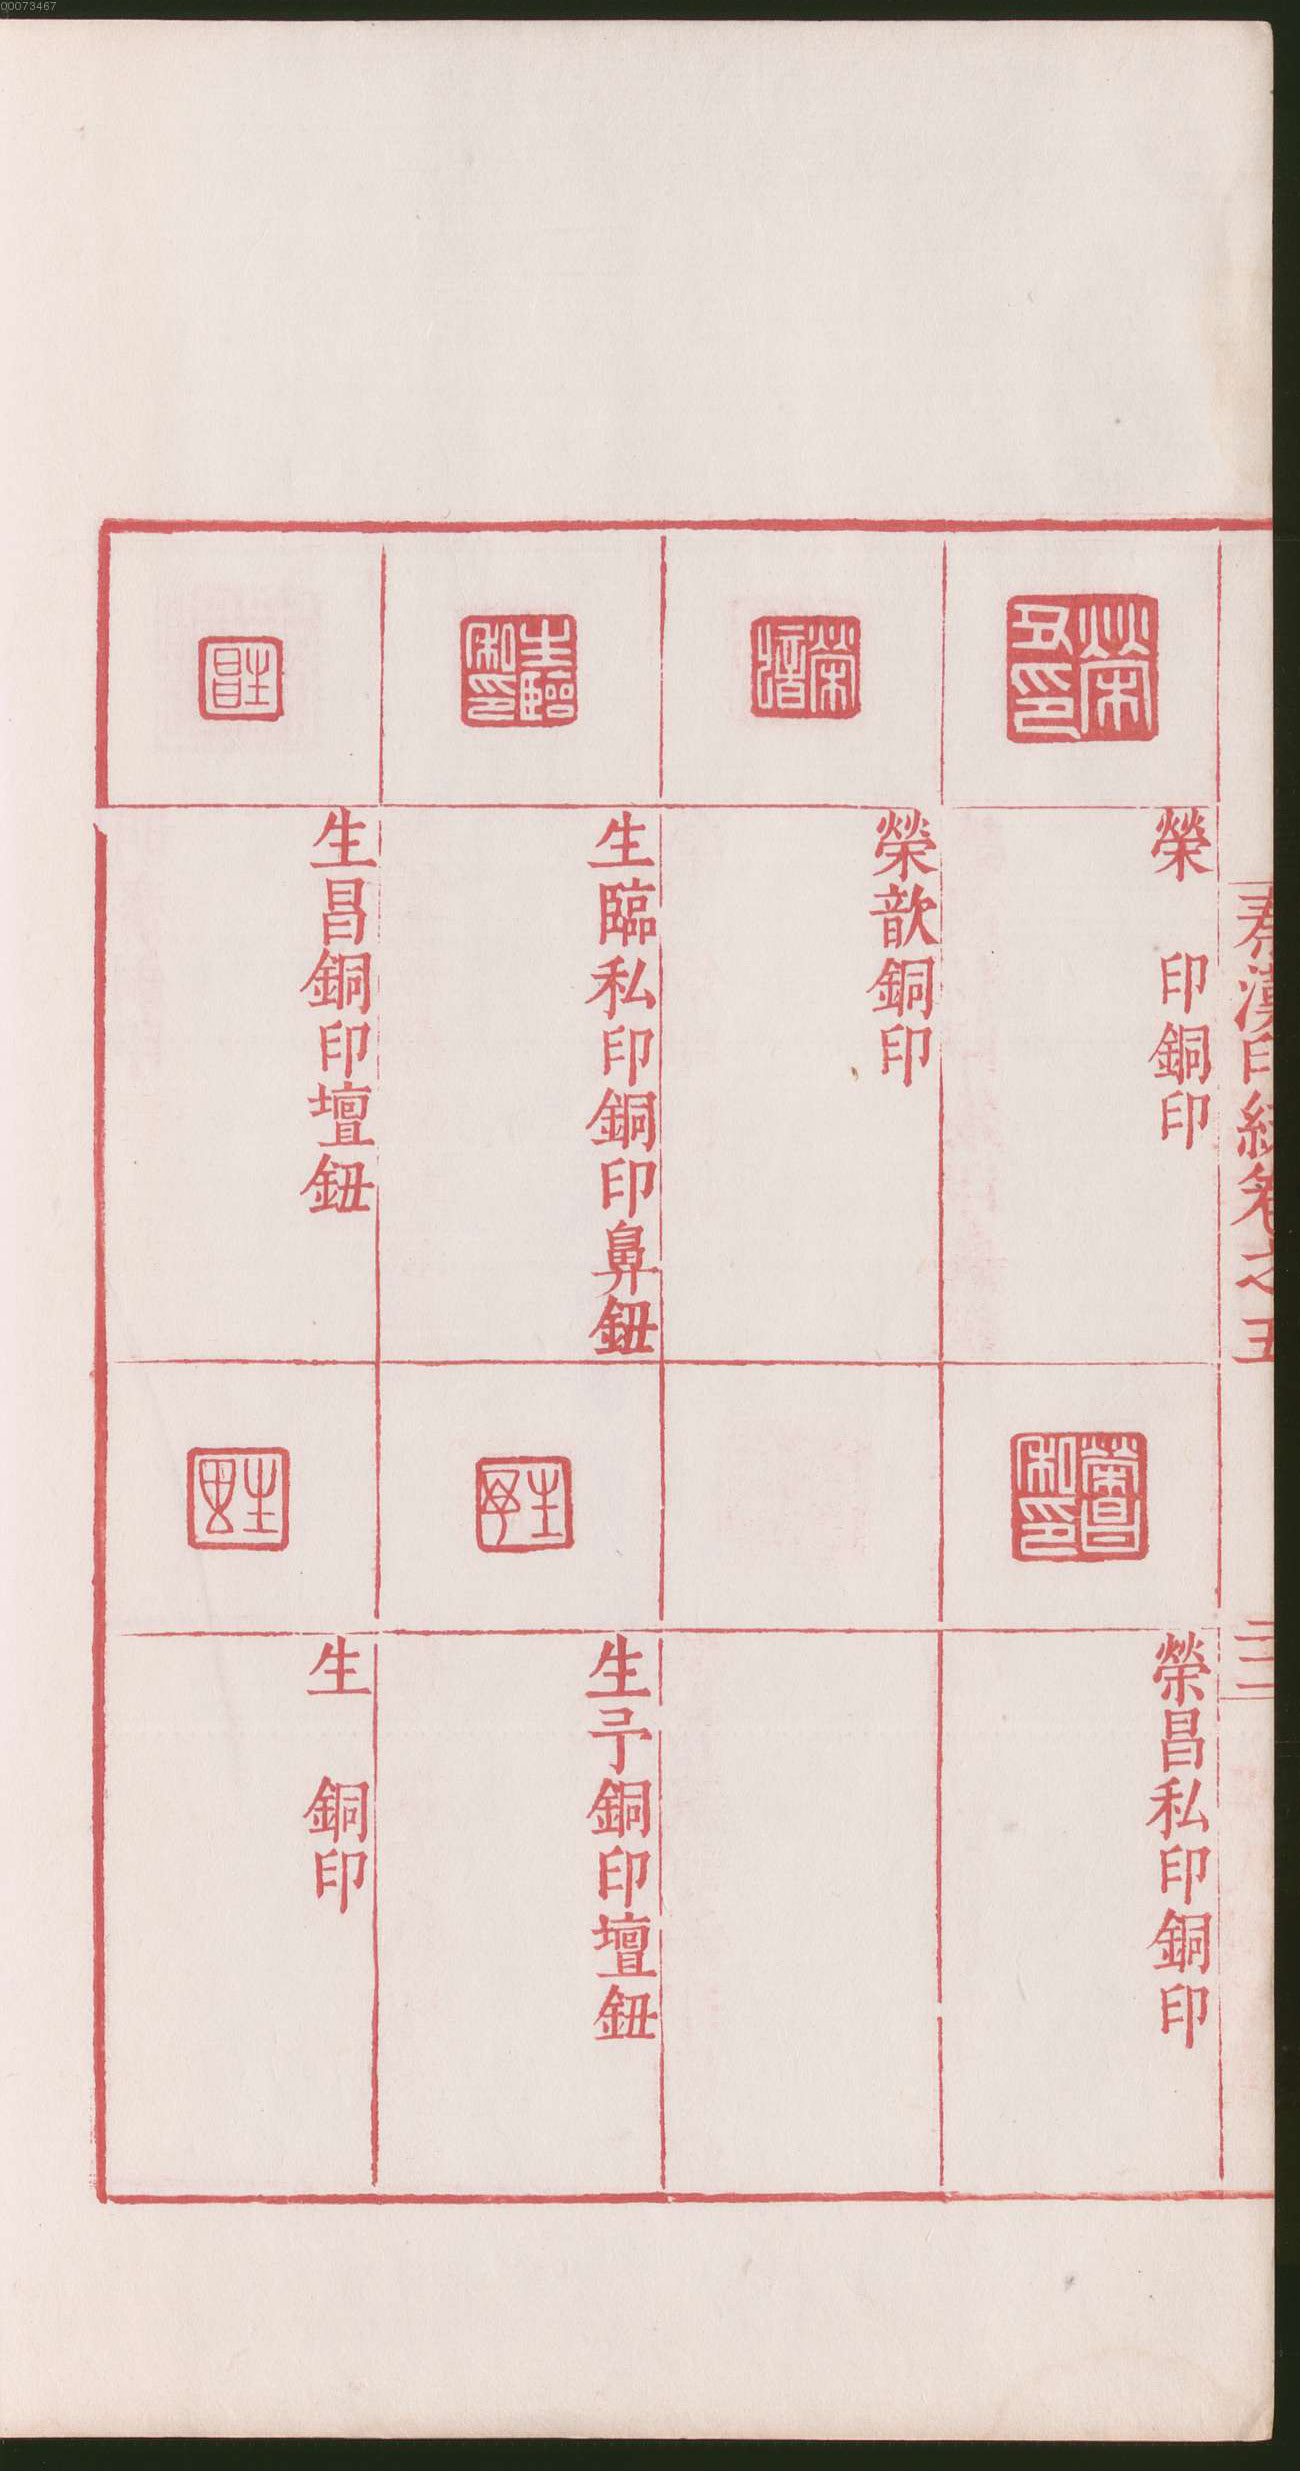 00073467
秦漢印統卷之五
三一
榮　印銅印
榮昌私印銅印
榮歆銅印
生臨私印銅印鼻鈕
生予銅印壇鈕
生昌銅印壇鈕
生　銅印